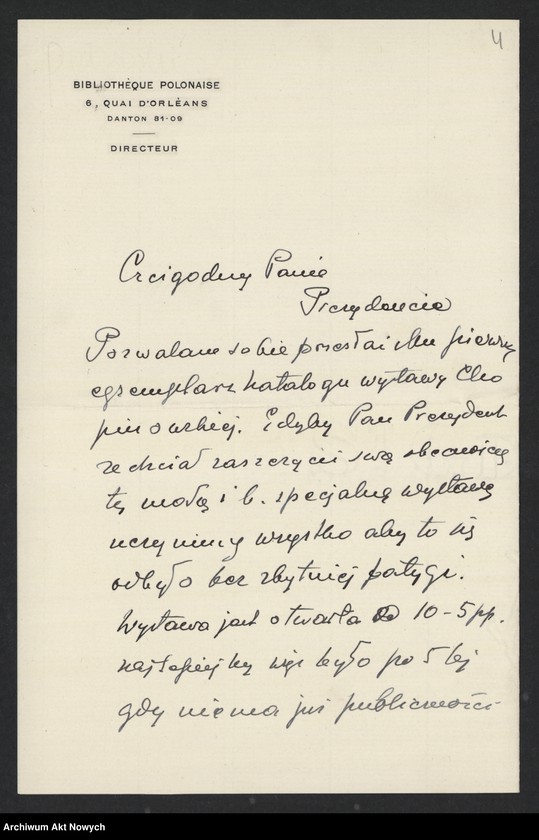 4
BIBLIOTHÈQUE POLONAISE
6, QUAI D'ORLÉANS
DANTON 81-09
DIRECTEUR
Czcigodny Panie
Prezydencie
Pozwalam sobie przesłać Mu pierwszy
egzemplarz katalogu wystawy Cho
pinowskiej. Gdyby Pan Prezydent
zechciał zaszczycić swą obecnością
tę małą i b. specjalną wystawę
uczynimy wszystko aby to się
odbyło bez zbytniej fatygi.
Wystawa jest otwarta od 10-5 pp.
najlepiej by więc było po 5 tej
gdy niema już publiczności
Archiwum Akt Nowych